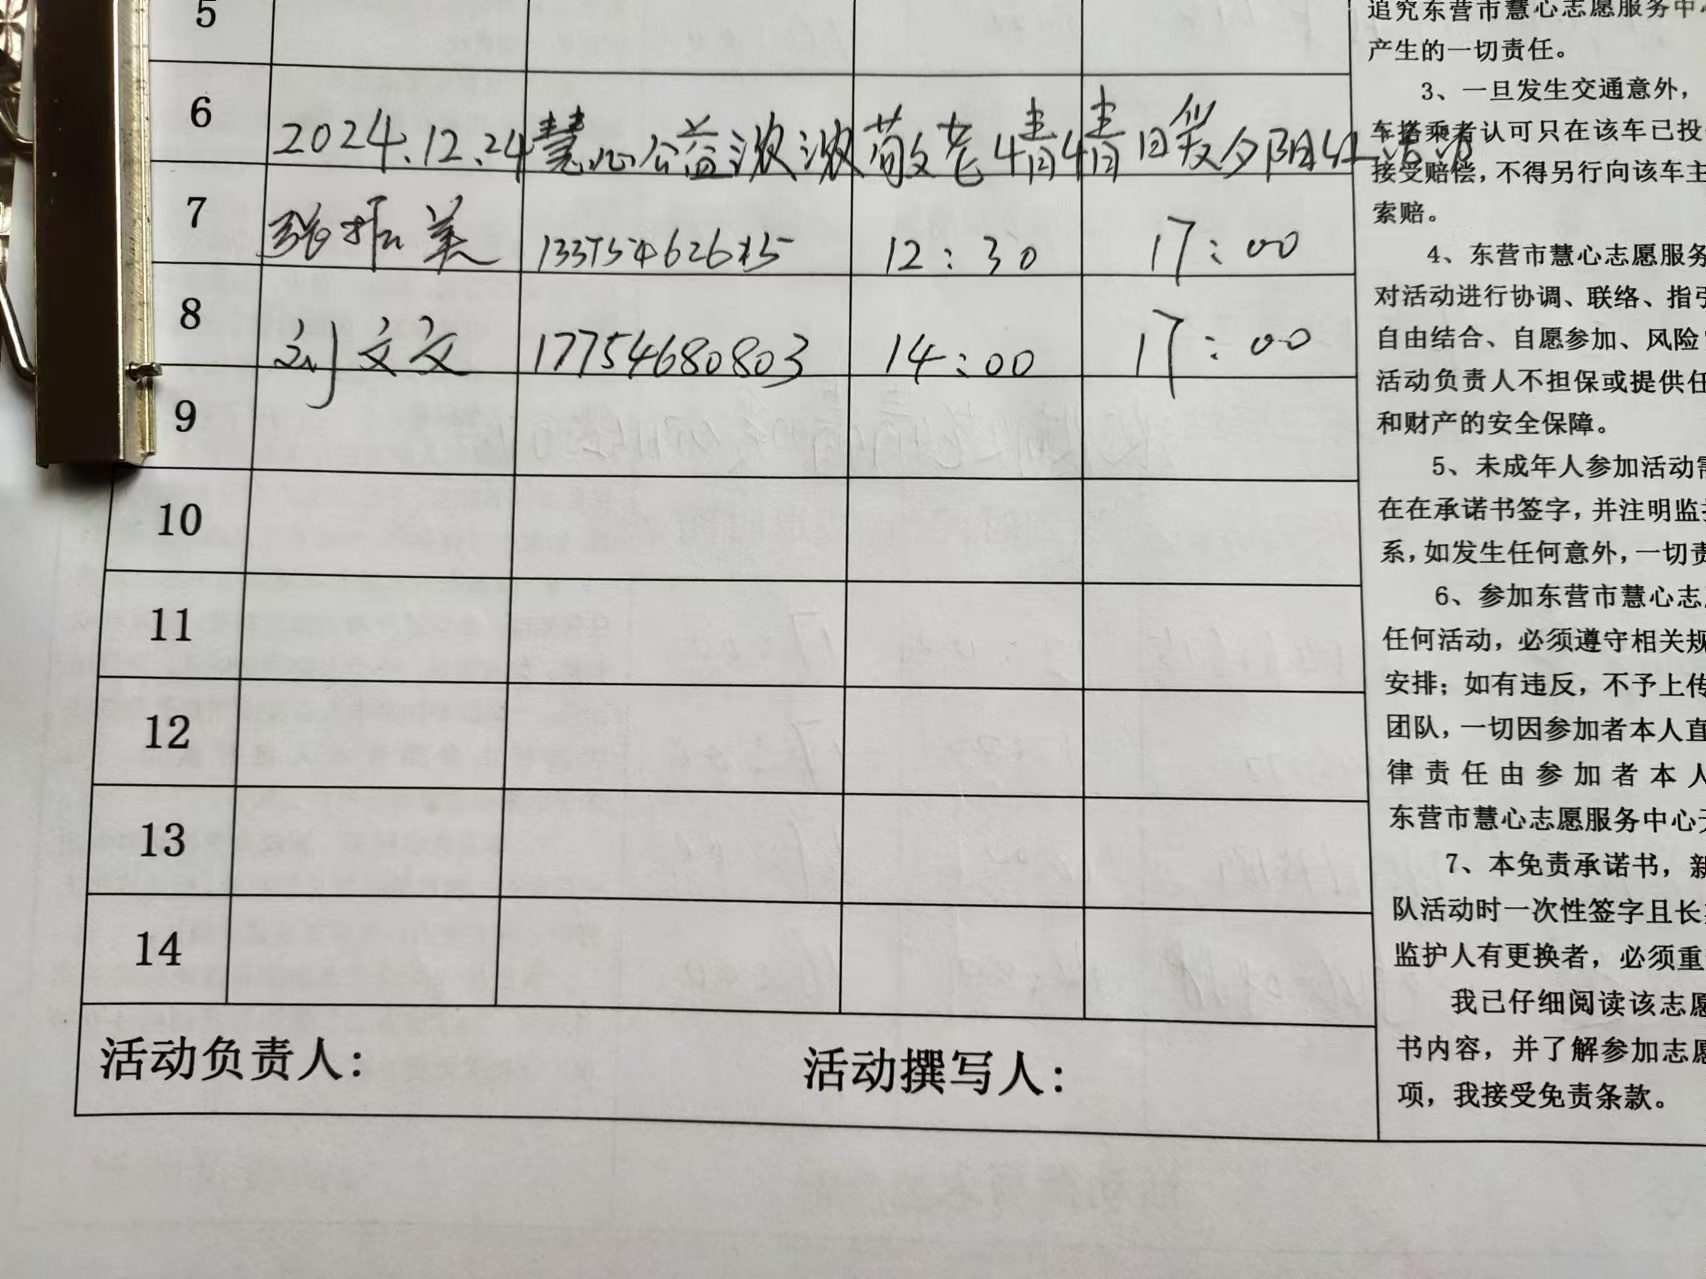 5
6 2024.12.24慧心公益浓浓敬老情情日爱夕阳红活动
7 张振美 13375462615 12:30 17:00
8 刘文文 17754680803 14:00 17:00
9
10
11
12
13
14
活动负责人: 活动撰写人:
追究东营市慧心志愿服务中心
产生的一切责任。
3、一旦发生交通意外，
车搭乘者认可只在该车已投
接受赔偿，不得另行向该车主
索赔。
4、东营市慧心志愿服务
对活动进行协调、联络、指引
自由结合、自愿参加、风险
活动负责人不担保或提供任
和财产的安全保障。
5、未成年人参加活动需
在在承诺书签字，并注明监护
系，如发生任何意外，一切责
6、参加东营市慧心志愿
任何活动，必须遵守相关规
安排；如有违反，不予上传
团队，一切因参加者本人直
律责任由参加者本人
东营市慧心志愿服务中心无
7、本免责承诺书，新
队活动时一次性签字且长
监护人有更换者，必须重
我已仔细阅读该志愿
书内容，并了解参加志愿
项，我接受免责条款。